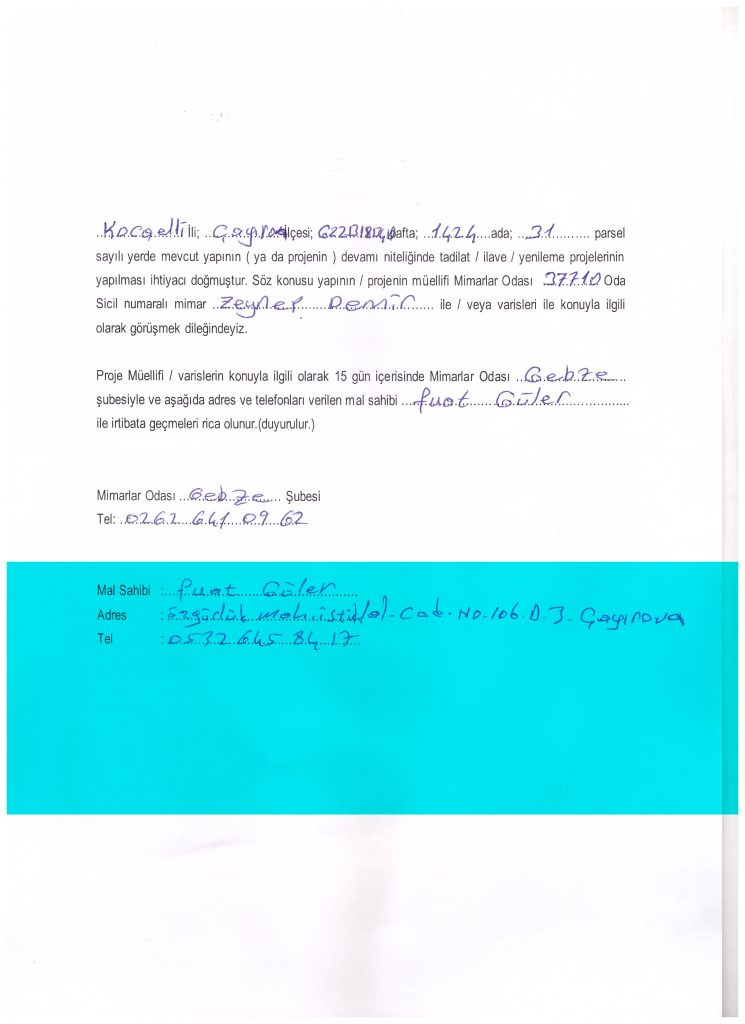 Kocaelli İli; Çayırova İlçesi; G22B18D4B pafta; 1424 ada; 31 parsel
sayılı yerde mevcut yapının ( ya da projenin ) devamı niteliğinde tadilat / ilave / yenileme projelerinin
yapılması ihtiyacı doğmuştur. Söz konusu yapının / projenin müellifi Mimarlar Odası 37710 Oda
Sicil numaralı mimar Zeynep Demir ile / veya varisleri ile konuyla ilgili
olarak görüşmek dileğindeyiz.
Proje Müellifi / varislerin konuyla ilgili olarak 15 gün içerisinde Mimarlar Odası Gebze
şubesiyle ve aşağıda adres ve telefonları verilen mal sahibi fuat Güler
ile irtibata geçmeleri rica olunur.(duyurulur.)
Mimarlar Odası Gebze Şubesi
Tel: 0262 641 09 62
Mal Sahibi : fuat Güler
Adres : özgürlük mah. istiklal. Cad. No. 106. D. 3. Çayırova
Tel : 0532 645 84 17